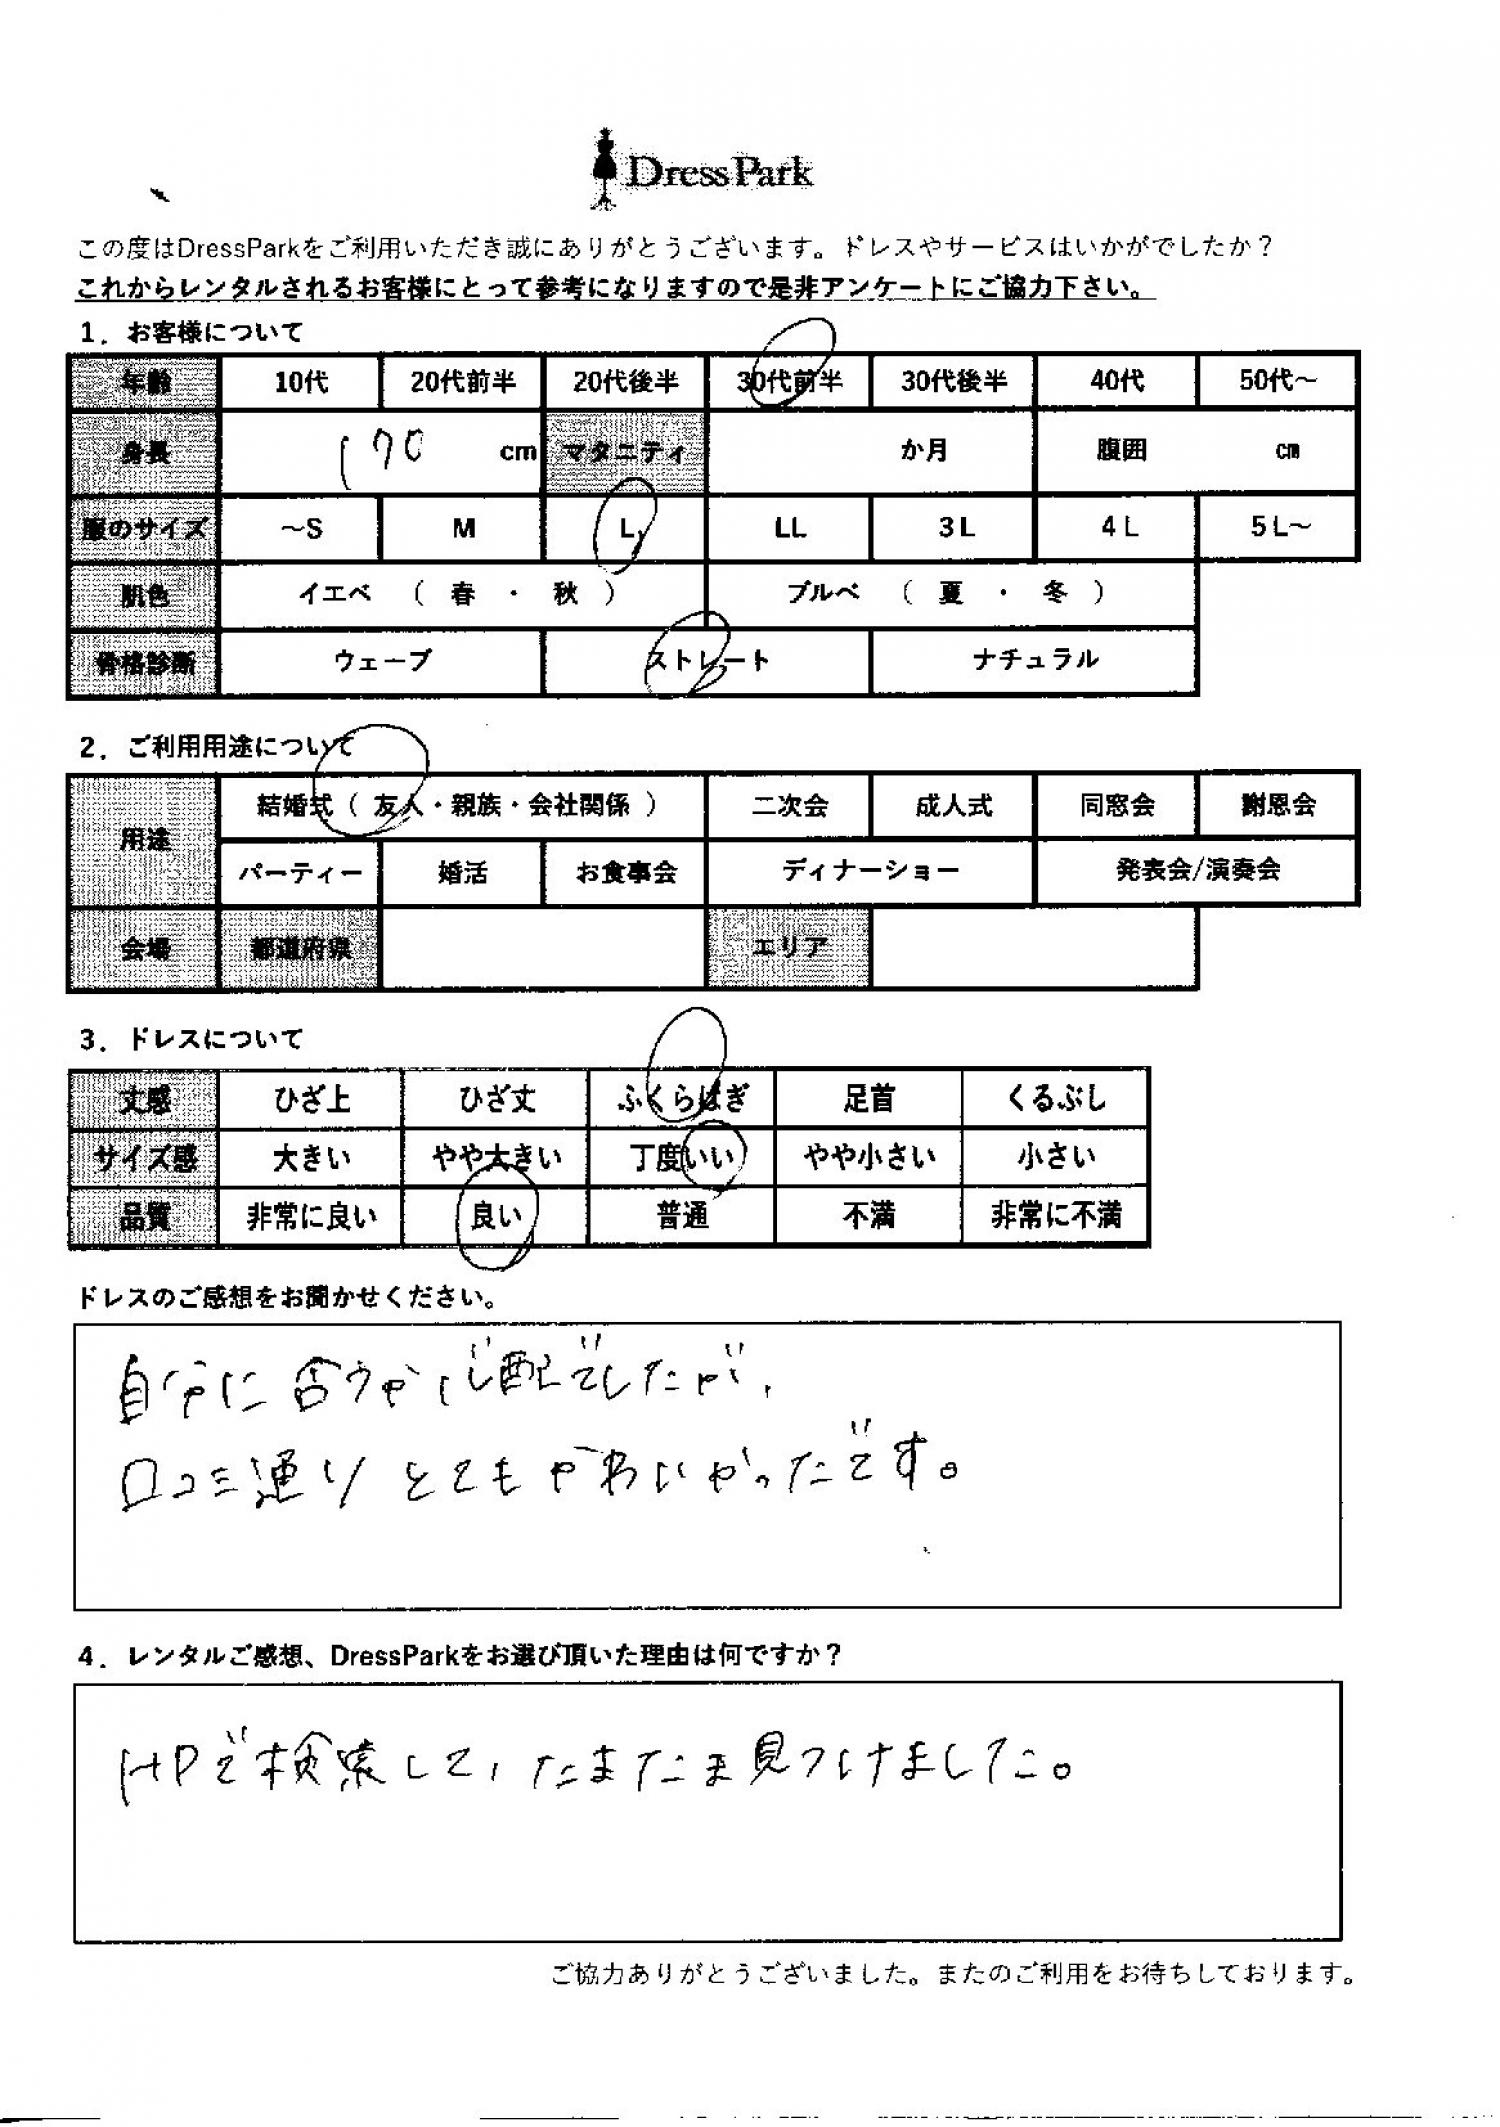 DressPark
この度はDressParkをご利用いただき誠にありがとうございます。ドレスやサービスはいかがでしたか？
これからレンタルされるお客様にとって参考になりますので是非アンケートにご協力下さい。
1．お客様について
年齢 10代 20代前半 20代後半 30代前半 30代後半 40代 50代～
身長 170 cm マタニティ か月 腹囲 cm
服のサイズ ～S M L LL 3L 4L 5L～
肌色 イエベ （ 春 ・ 秋 ） ブルベ （ 夏 ・ 冬 ）
骨格診断 ウェーブ ストレート ナチュラル
2．ご利用用途について
用途 結婚式（ 友人・親族・会社関係 ） 二次会 成人式 同窓会 謝恩会
パーティー 婚活 お食事会 ディナーショー 発表会/演奏会
会場 都道府県 エリア
3．ドレスについて
丈感 ひざ上 ひざ丈 ふくらはぎ 足首 くるぶし
サイズ感 大きい やや大きい 丁度いい やや小さい 小さい
品質 非常に良い 良い 普通 不満 非常に不満
ドレスのご感想をお聞かせください。
自分に合うか心配でしたが、
口コミ通りとてもかわいかったです。
4．レンタルご感想、DressParkをお選び頂いた理由は何ですか？
HPで検索して、たまたま見つけました。
ご協力ありがとうございました。またのご利用をお待ちしております。